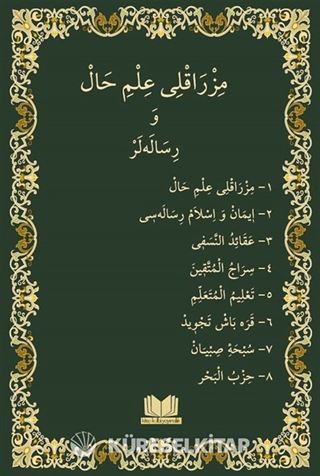 مِزْرَاقْلِى عِلْمِ حَالْ
وَ
رِسَالَەلَرْ
١- مِزْرَاقْلِى عِلْمِ حَالْ
٢- اِيمَانْ وَ اِسْلَامْ رِسَالَەسِى
٣- عَقَائِدُ النَّسَفِى
٤- سِرَاجُ الْمُتَّقِينَ
٥- تَعْلِيمُ الْمُتَعَلِّمِ
٦- قَرَە بَاشْ تَجْوِيدْ
٧- سُبْحَۀِ صِبْيَانْ
٨- حِزْبُ الْبَحْرِ
KÜRESELKİTAR